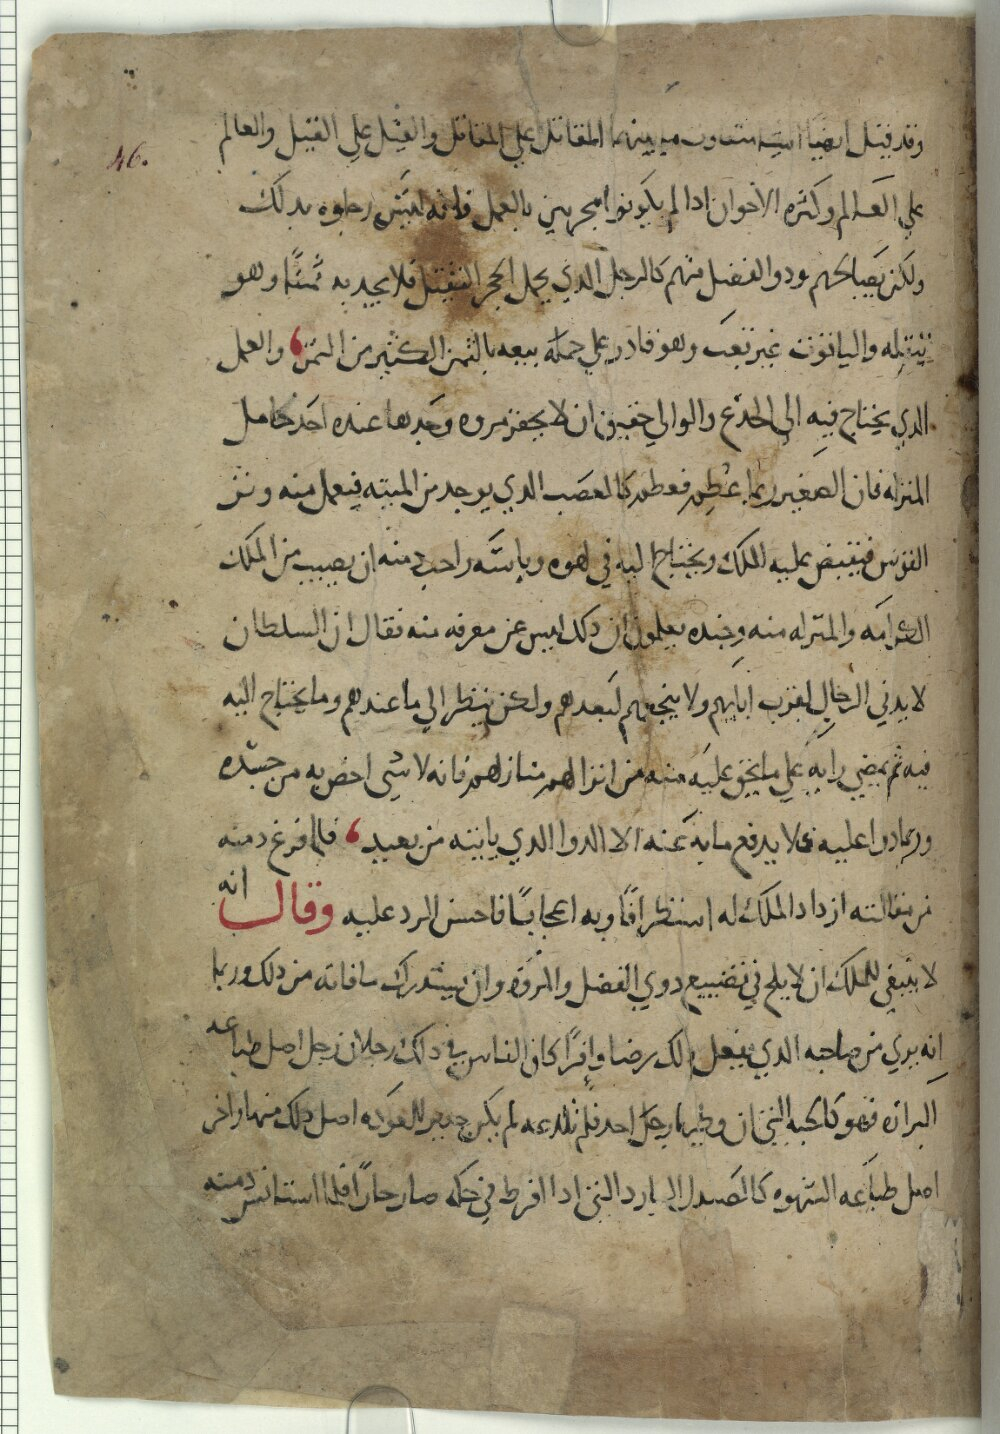 46.
وقد قيل ايضا اشيا متفاوت ما بينها المقاتل علي المقاتل والفيل علي الفيل والعالم
علي العالم وكثره الاخوان اذا لم يكونوا مجربين بالعمل فانه ليس رجاوه بدلك
ولكن بصالحهم ودوا الفضل منهم كالرجل الدي يحمل الحجر الثقيل فلا يجد به ثمنًا وهو
يثقله والياقوت غير تعب وهو قادر علي حمله يبيعه بالثمن الكثير من الثمن والعمل
الدي يحتاج فيه الي الجدع والوالي حقيق ان لا يحقر مروه وجدها عنده احد خامل
المنزله فان الصغير ربما عظم فعظم كالعصب الدي يوجد من الميته فيعمل منه وتر
القوس فيقبض عليه الملك ويحتاج اليه في لهوه وباسه واحب دمنه ان يصيب من الملك
الكرامه والمنزله منه وجنده يعلمون ان دلك ليس عن معرفه منه فقال ان السلطان
لا يدني الرجال لقرب ابايهم ولا ينحيهم لبعدهم ولكن ينظر الي ما عندهم وما يحتاج اليه
فيه ثم يمضي رايه علي ما يحق عليه منه من انزالهم منازلهم فانه لا شي اخص به من جسده
وربما دوا عليه فلا يدفع ما به عنه الا الدوا الدي ياتيه من بعيد فلما فرغ دمنه
من مقالته ازداد الملك له استظرافًا وبه اعجابًا فاحسن الرد عليه وقال انه
لا ينبغي للملك ان لا يلج في تضييع دوي الفضل والمروه وان يستدرك ما فاته من دلك وربما
انه يري من صاحبه الدي يفعل دلك به رضا وافرًا كان الناس في دلك رجلان رجل اصل طباعه
الشراره فهو كالحيه التي ان وطيها رجل احد فلم تلدغه لم يكن جدير للعوده اصل دلك منها واخر
اصل طباعه السهوله كالصندل البارد التي ادا افرط في حكه صار حارًا فلما استانس دمنه